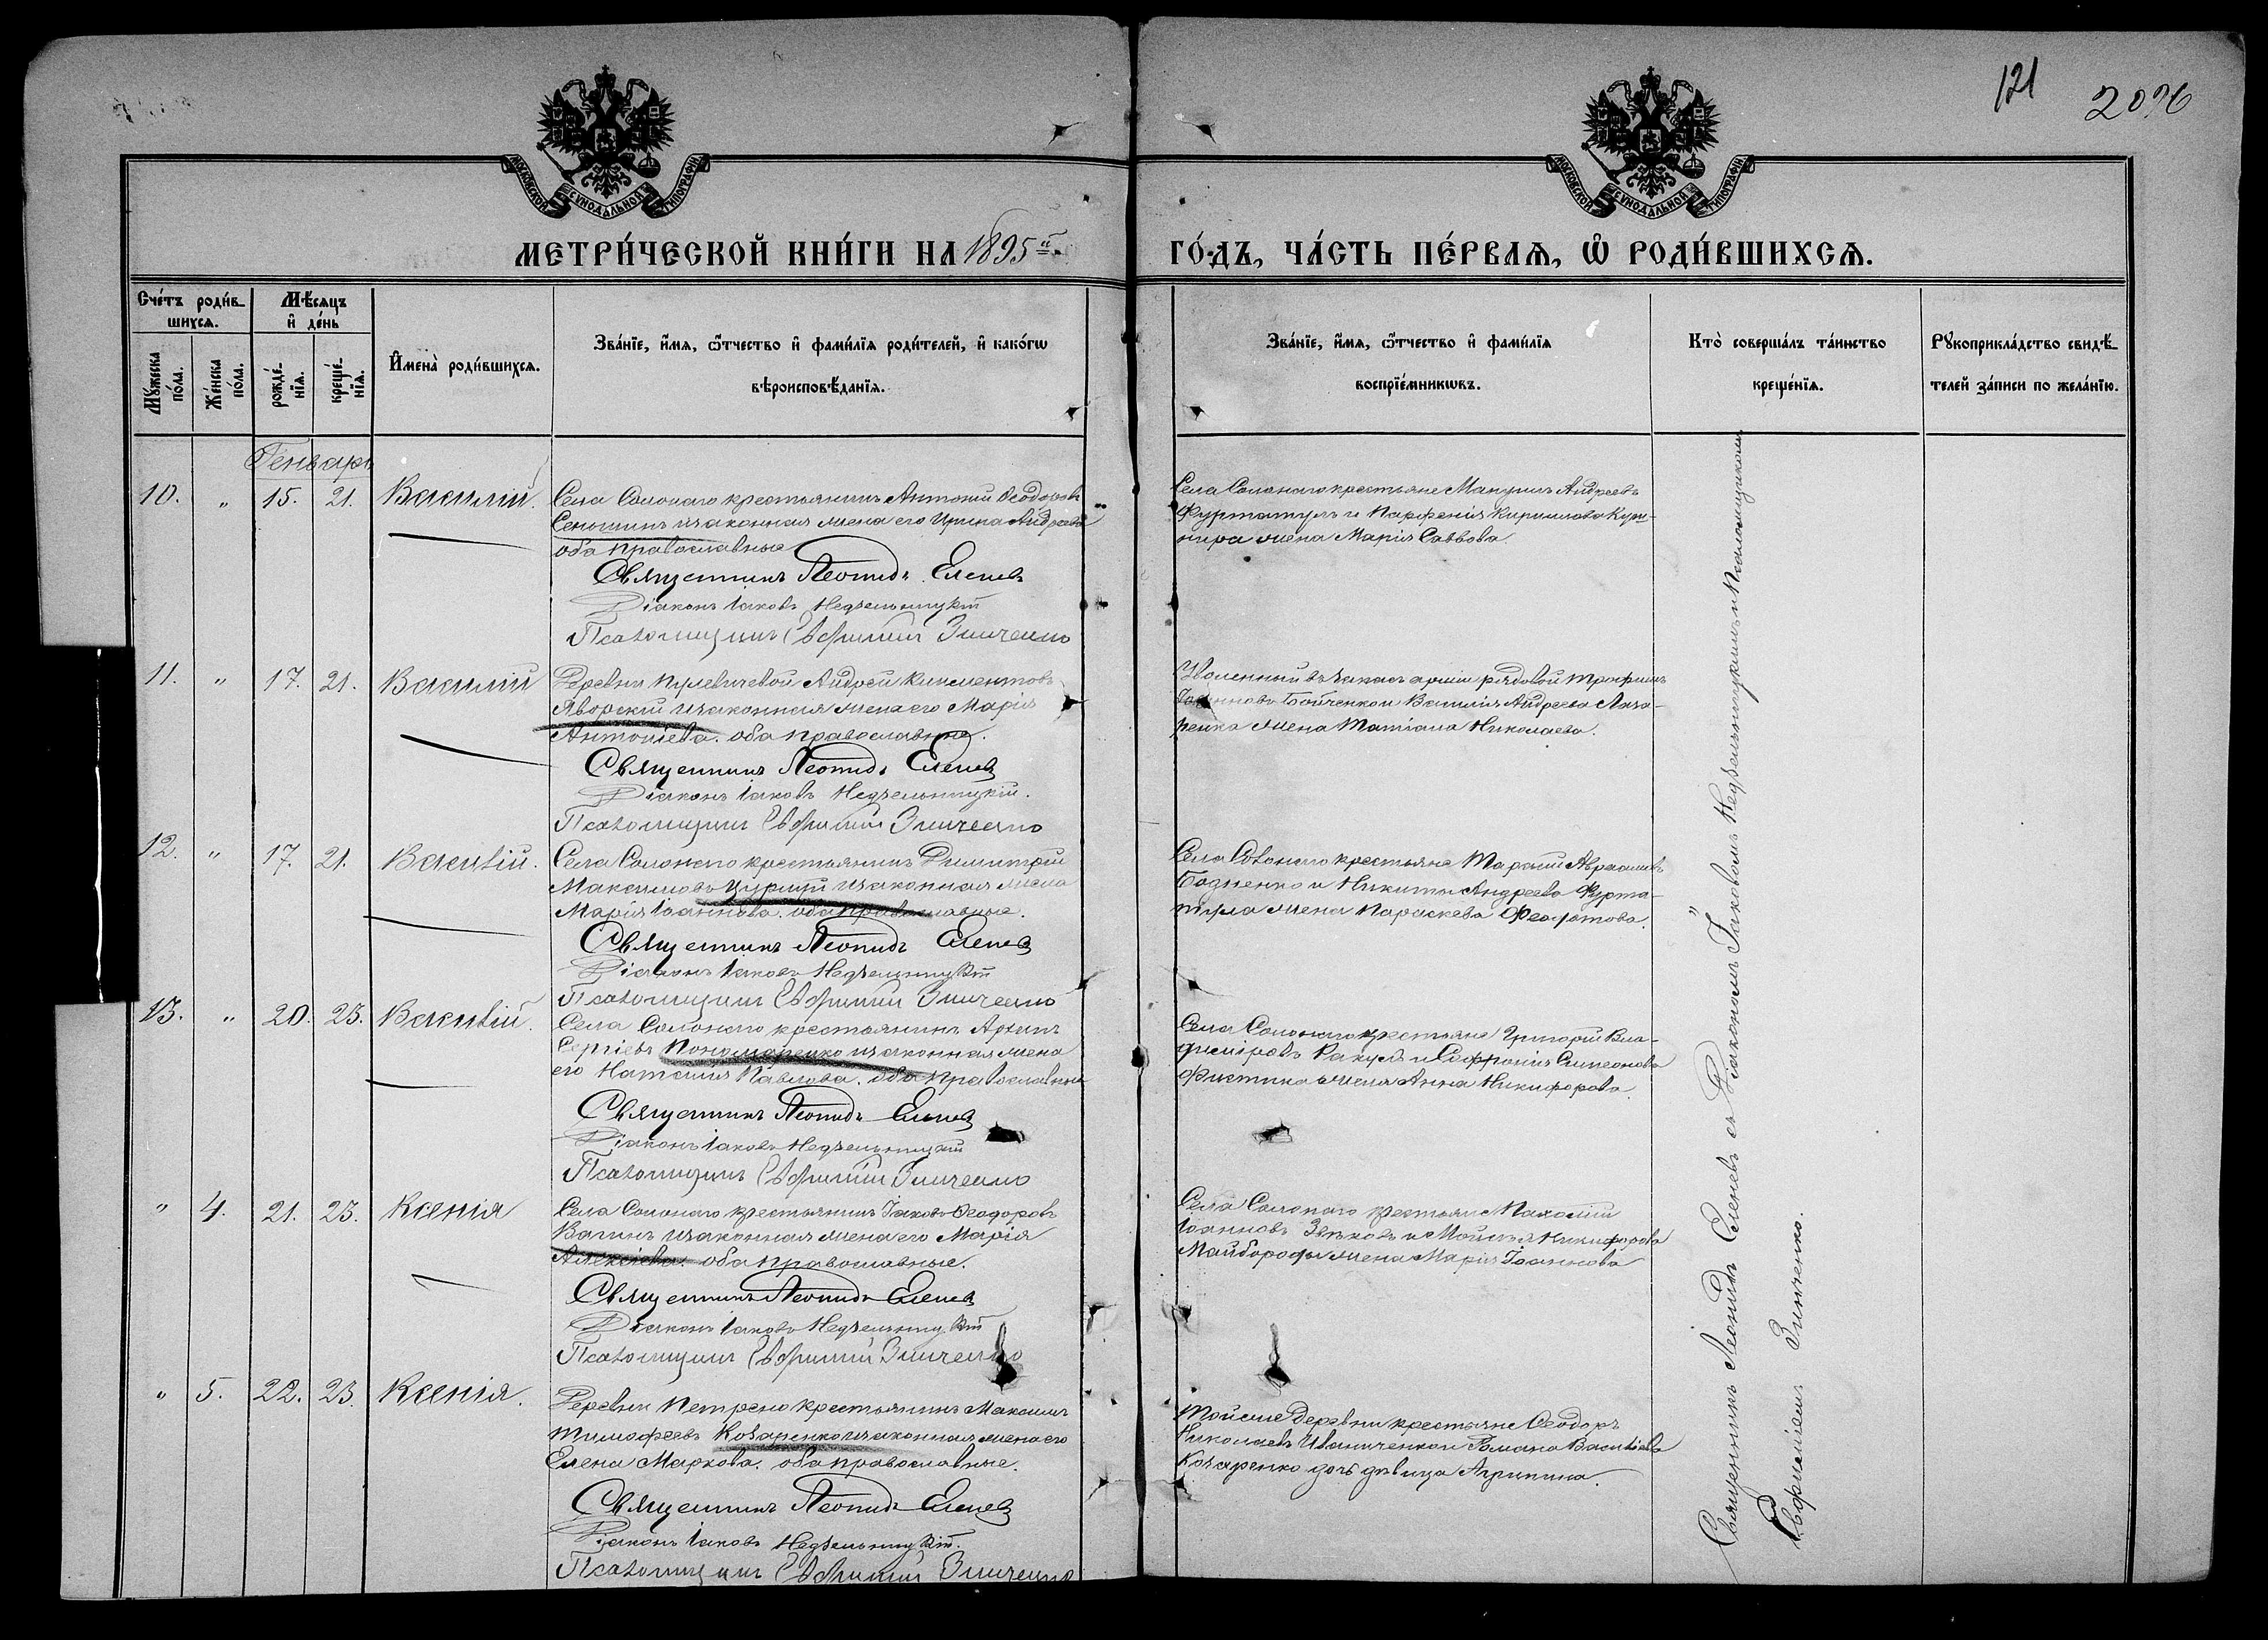 121
2096
МОСКОВСКОЙ СУНОДАЛЬНОЙ ТИПОГРАФІИ
МОСКОВСКОЙ СУНОДАЛЬНОЙ ТИПОГРАФІИ
МЕТРИ́ЧЕСКОЙ КНИ́ГИ НА 1895 й
ГО́ДЪ, ЧА́СТЬ ПЕ́РВАѦ, Ѿ РОДИ́ВШИХСѦ.
Сче́тъ роди́в-
шихсѧ.
Мꙋжеска по́ла.
Же́нска по́ла.
Мѣ́сѧцъ
и҆ де́нь
рожде́-нїѧ.
креще́-нїѧ.
И҆мена̀ роди́вшихсѧ.
Зва́нїе, и҆́мѧ, ѻ҆́тчество и҆ фами́лїѧ роди́телей, и҆ како́гѡ
вѣроисповѣ́данїѧ.
Зва́нїе, и҆́мѧ, ѻ҆́тчество и҆ фами́лїѧ
воспрїе́мникѡвъ.
Кто̀ соверша́лъ та́инство
креще́нїѧ.
Рꙋкоприкла́дство свидѣ́-
телей за́писи по жела́нїю.
Генварь
10. „ 15. 21. Василій.
Села Солонаго крестьянинъ Антоній Ѳеодоровъ
Сеньшинъ и законная жена его Ирина Андреева
оба православные
Священникъ Леонидъ Еленевъ
Діаконъ Іаковъ Недзельницкій
Псаломщикъ Евфимій Зинченко
Села Солонаго крестьяне Андреевъ
Фуртатулъ и Парфенія Кириллова
жена Марія Саввова.
11. „ 17. 21. Василій
Деревни Андрей Климентовъ
Яворскій и законная жена его Марія
Антоніева. оба православные.
Священникъ Леонидъ Еленевъ
Діаконъ Іаковъ Недзельницкій.
Псаломщикъ Евфимій Зинченко
Уволенный въ запасъ арміи рядовой Трифинъ
Іоанновъ Бойченко и Василія Андреева Лаза-
ренка жена Татіана Николаева.
12. „ 17. 21. Василій.
Села Солонаго крестьянинъ Димитрій
Максимовъ и законная жена
Марія Іоаннова. оба православные.
Священникъ Леонидъ Еленевъ
Діаконъ Іаковъ Недзельницкій
Псаломщикъ Евфимій Зинченко
Села Солонаго крестьяне Тарасій Авраамовъ
Бодненко и Никиты Андреева Фурта-
тула жена Параскева Ѳеофатова.
13. „ 20. 23. Василій.
Села Солонаго крестьянинъ Архипъ
Сергіевъ Пономаренко и законная жена
его Наталія Павлова. оба православные
Священникъ Леонидъ Еленевъ
Діаконъ Іаковъ Недзельницкій
Псаломщикъ Евфимій Зинченко
Села Солонаго крестьяне Григорій Вла-
диміровъ Ракулъ и Софронія Симеонова
Фистика жена Анна Никифорова.
„ 4. 21. 23. Ксенія
Села Солонаго крестьянинъ Іаковъ Ѳеодоровъ
Вагинъ и законная жена его Марія
Алексіева. оба православные.
Священникъ Леонидъ Еленевъ
Діаконъ Іаковъ Недзельницкій
Псаломщикъ Евфимій Зинченко
Села Солонаго крестьяне Пахомій
Іоанновъ Звѣковъ и Мойсея Никифорова
Майбороды жена Марія Іоаннова
„ 5. 22. 23. Ксенія.
Деревни Петрено крестьянинъ Максимъ
Тимофеевъ Кочаренко и законная жена его
Елена Маркова. оба православные.
Священникъ Леонидъ Еленевъ
Діаконъ Іаковъ Недзельницкій.
Псаломщикъ Евфимій Зинченко
Той же деревни крестьяне Ѳеодоръ
Николаевъ Иваниченко и Романа Василіева
Кочаренко дочь дѣвица Агрипина.
Священникъ Леонидъ Еленевъ съ Діакономъ Іаковомъ Недзельницкимъ и Псаломщикомъ
Евфиміемъ Зинченко.